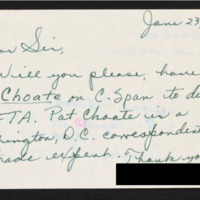 June 23,
Sir,
Will you please, have
Choate on C-Span to di
TA. Pat Choate is a
hington, D.C. correspondent
rade expert. Thank you